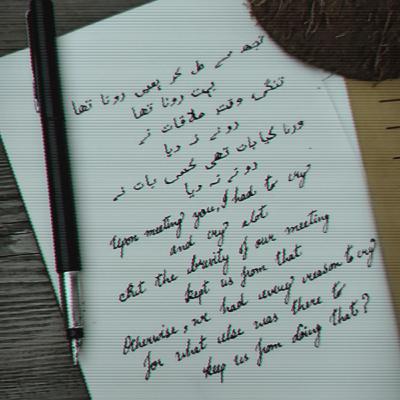 تجھ سے مل کر ہمیں رونا تھا
بہت رونا تھا
تنگئی وقت ملاقات نے
رونے نہ دیا
ورنا کیا بات تھی کس بات نے
رونے نہ دیا
Upon meeting you, I had to cry
and cry alot
But the brevity of our meeting
kept us from that
Otherwise, we had every reason to cry
for what else was there to
keep us from doing that?